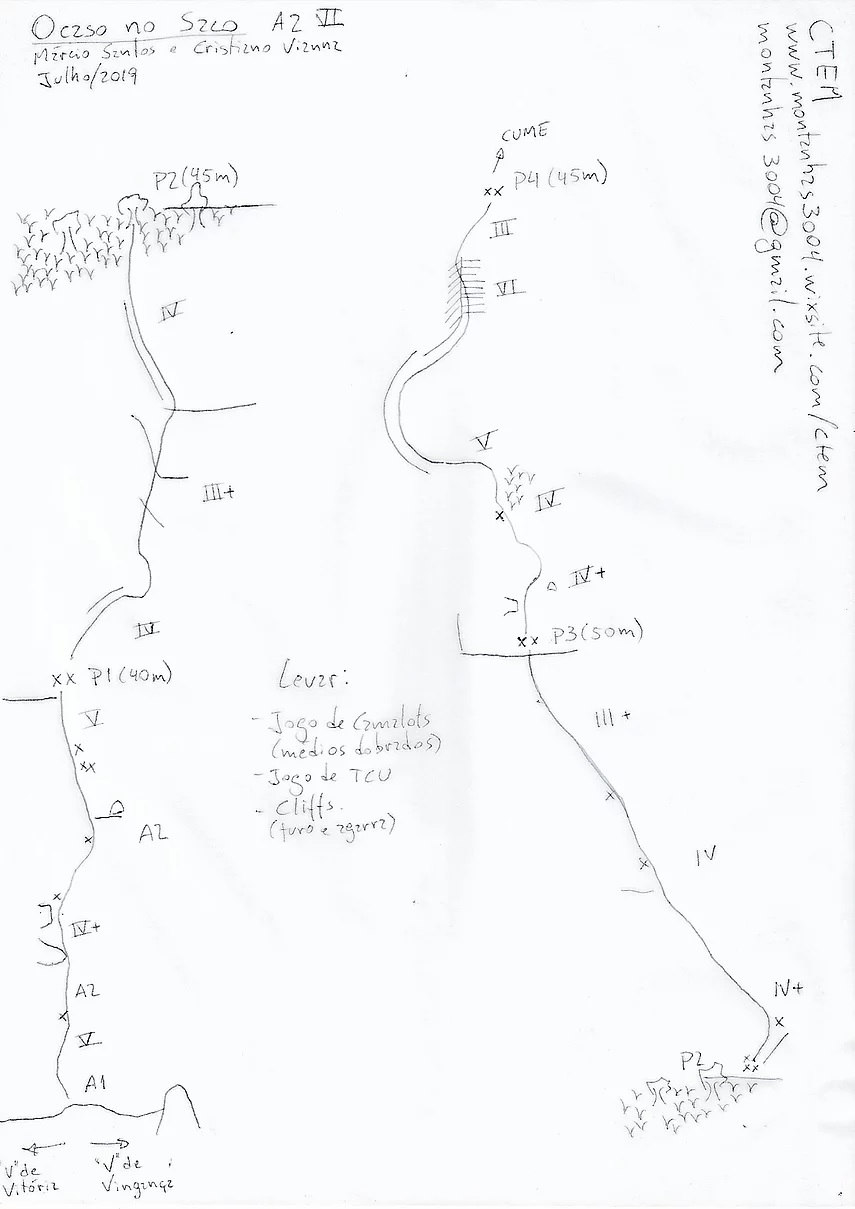 Ocaso no Saco A2 VI
Márcio Santos e Cristiano Vianna
Julho/2019
CTEM
www.montanhas3004.wixsite.com/ctem
montanhas3004@gmail.com
P2(45m)
IV
III+
IV
P1(40m)
V
A2
IV+
A2
V
A1
"V" de
Vitória
"V" de
Vingança
Levar:
- Jogo de Camalots
(médios dobrados)
- Jogo de TCU
- Cliffs.
(furo e agarra)
CUME
P4(45m)
III
VI
V
IV
IV+
P3(50m)
III+
IV
IV+
P2